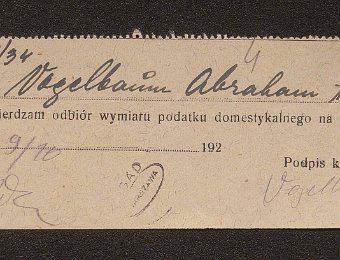 /34.
4
Vogelbaum Abraham
ierdzam odbiór wymiaru podatku domestykalnego na
9/12 192
Podpis k
SĄD
WARSZAWA
Vogelb